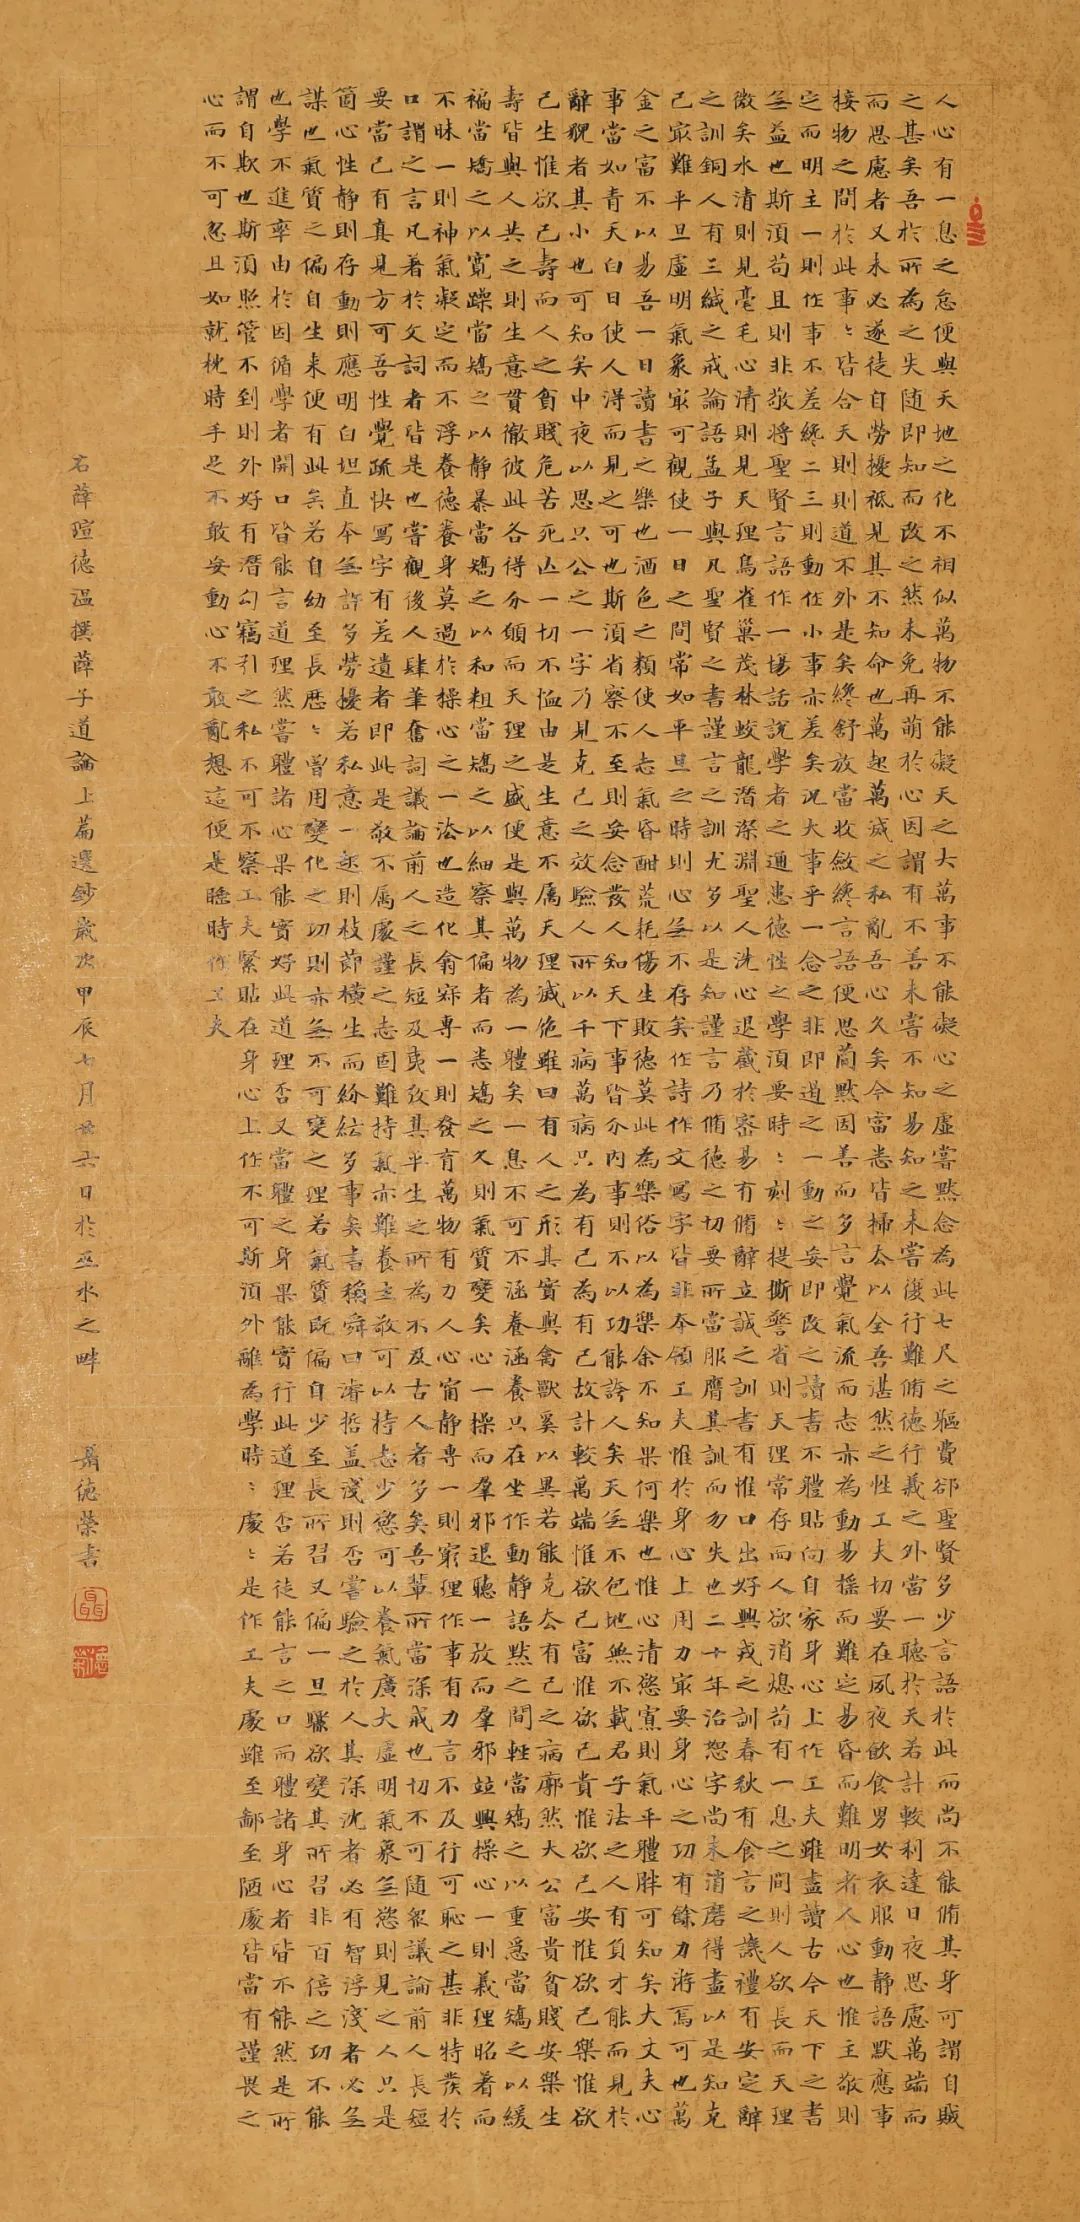 人心有一息之怠便與天地之化不相似萬物不能礙天之大萬事不能礙心之虛嘗默念為此七尺之軀費卻聖賢多少言語於此而尚不能脩其身可謂自賊
之甚矣吾於所為之失隨即知而改之然未免再萌於心因謂有不善未嘗不知易知之未嘗復行難脩德行義之外當一聽於天若計較利達日夜思慮萬端而
而思慮者又未必遂徒自勞擾祗見其不知命也萬起萬滅之私亂吾心久矣今當悉皆掃去以全吾湛然之性工夫切要在夙夜飲食男女衣服動靜語默應事
接物之間於此事〻皆合天則則道不外是矣纔舒放當收斂纔言語便思簡默因善而多言覺氣流而志亦為動易搖而難定易昏而難明者人心也惟主敬則
定而明主一則作事不差纔二三則動作小事亦差矣況大事乎一念之非即遏之一動之妄即改之讀書不體貼向自家身心上作工夫雖盡讀古今天下之書
無益也斯須苟且則非敬將聖賢言語作一場話說學者之通患德性之學須要時〻刻〻提撕警省則天理常存而人欲消熄苟有一息之間則人欲長而天理
微矣水清則見毫毛心清則見天理鳥雀巢茂林蛟龍潛深淵聖人洗心退藏於密易有脩辭立誠之訓書有惟口出好興戎之訓春秋有食言之譏禮有安定辭
之訓銅人有三緘之戒論語孟子與凡聖賢之書謹言之訓尤多以是知謹言乃脩德之切要所當服膺其訓而勿失也二十年治恕字尚未消磨得盡以是知克
己最難平旦虛明氣象最可觀使一日之間常如平旦之時則心無不存矣作詩作文寫字皆非本領工夫惟於身心上用力最要身心之功有餘力游焉可也萬
金之富不以易吾一日讀書之樂也酒色之類使人志氣昏酣荒耗傷生敗德莫此為樂俗以為樂余不知果何樂也惟心清慾寡則氣平體胖可知矣大丈夫心
事當如青天白日使人得而見之可也斯須省察不至則妄念發人知天下事皆分內事則不以功能誇人矣天無不包地無不載君子法之人有負才能而見於
辭貌者其小也可知矣中夜以思只公之一字乃見克己之效驗人所以千病萬病只為有己為有己故計較萬端惟欲己富惟欲己貴惟欲己安惟欲己樂惟欲
己生惟欲己壽而人之貧賤危苦死亡一切不恤由是生意不屬天理滅絕雖曰有人之形其實與禽獸奚以異若能克去有己之病廓然大公富貴貧賤安樂生
壽皆與人共之則生意貫徹彼此各得分願而天理之盛便是與萬物為一體矣一息不可不涵養涵養只在坐作動靜語默之間輕當矯之以重急當矯之以緩
褊當矯之以寬躁當矯之以靜暴當矯之以和粗當矯之以細察其偏者而悉矯之久則氣質變矣心一操而羣邪退聽一放而羣邪竝興操心一則義理昭著而
不昧一則神氣凝定而不浮養德養身莫過於操心之一法也造化翕寂專一則發育萬物有力人心甯靜專一則窮理作事有力言不及行可恥之甚非特發於
口謂之言凡著於文詞者皆是也嘗觀後人肆筆奮詞議論前人之長短及夷攷其平生之所為不及古人者多矣吾輩所當深戒也切不可隨眾議論前人長短
要當己有真見方可吾性覺疏快寫字有差遺者即此是敬不屬處謹之志固難持氣亦難養主敬可以持志少慾可以養氣廣大虛明氣象無慾則見之人只是
箇心性靜則存動則應明白坦直本無許多勞擾若私意一起則枝節橫生而紛紜多事矣書稱舜曰濬哲蓋淺則否嘗驗之於人其深沈者必有智浮淺者必無
謀也氣質之偏自生來便有此矣若自幼至長歷〻曾用變化之功則亦無不可變之理若氣質既偏自少至長所習又偏一旦驟欲變其所習非百倍之功不能
也學不進率由於因循學者開口皆能言道理然嘗體諸心果能實好此道理否又當體之身果能實行此道理否若徒能言之口而體諸身心者皆不能然是所
謂自欺也斯須照管不到則外好有潛勾竊引之私不可不察工夫緊貼在身心上作不可斯須外離為學時〻處〻是作工夫處雖至鄙至陋處皆當有謹畏之
心而不可忽且如就枕時手足不敢妄動心不敢亂想這便是睡時作工夫
右薛瑄德溫撰薛子道論上篇選鈔歲次甲辰七月廿六日於巫水之畔 聶德榮書